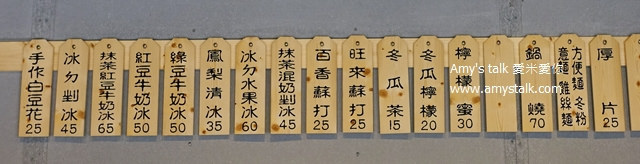 手作白豆花
25
冰ㄉ剉冰
45
抹茶紅豆牛奶冰
65
紅豆牛奶冰
50
綠豆牛奶冰
50
鳳梨清冰
35
冰ㄉ水果冰
60
抹茶混奶剉冰
45
百香蘇打
25
旺來蘇打
25
冬瓜茶
15
冬瓜檸檬
20
檸檬蜜
30
鍋燒
70
方便麵 冬粉
意麵 雞絲麵
厚片
25
Amy's talk 愛米愛你
www.amystalk.com